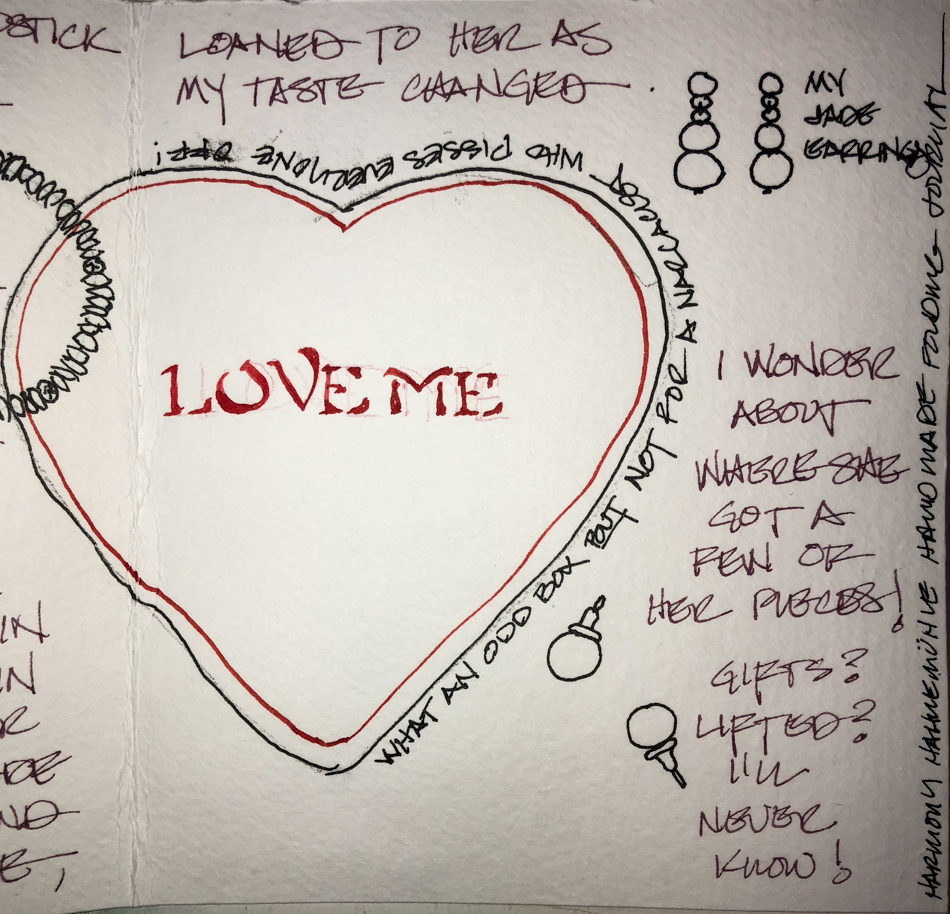 STICK
LOANED TO HER AS
MY TASTE CHANGED.
MY
JADE
EARRINGS
WHAT AN ODD BOX BUT NOT FOR A NARCACIST WHO PISSES EVERYONE OFF!
LOVE ME
I WONDER
ABOUT
WHERE SHE
GOT A
FEW OF
HER PIECES!
GIFTS?
LIFTED?
I'LL
NEVER
KNOW!
IN
IN
OR
DE
ND
E,
HARMONY HAHNEMÜHLE HANDMADE FOLDING